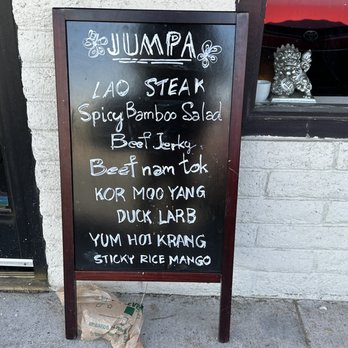 JUMPA
LAO STEAK
Spicy Bamboo Salad
Beef Jerky
Beef nam tok
KOR MOO YANG
DUCK LARB
YUM HOI KRANG
STICKY RICE MANGO